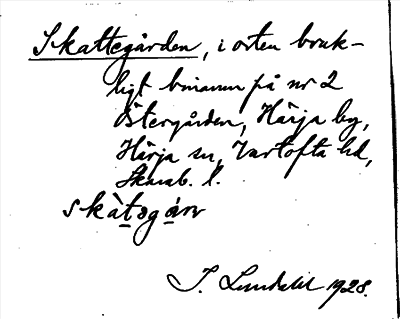 Skattegården, i orten bruk-
ligt binamn på nr 2
Östergården, Härja by,
Härja sn, Vartofta hd,
Skarab. l.
skàtəgáṛn
I. Lundahl 1928.